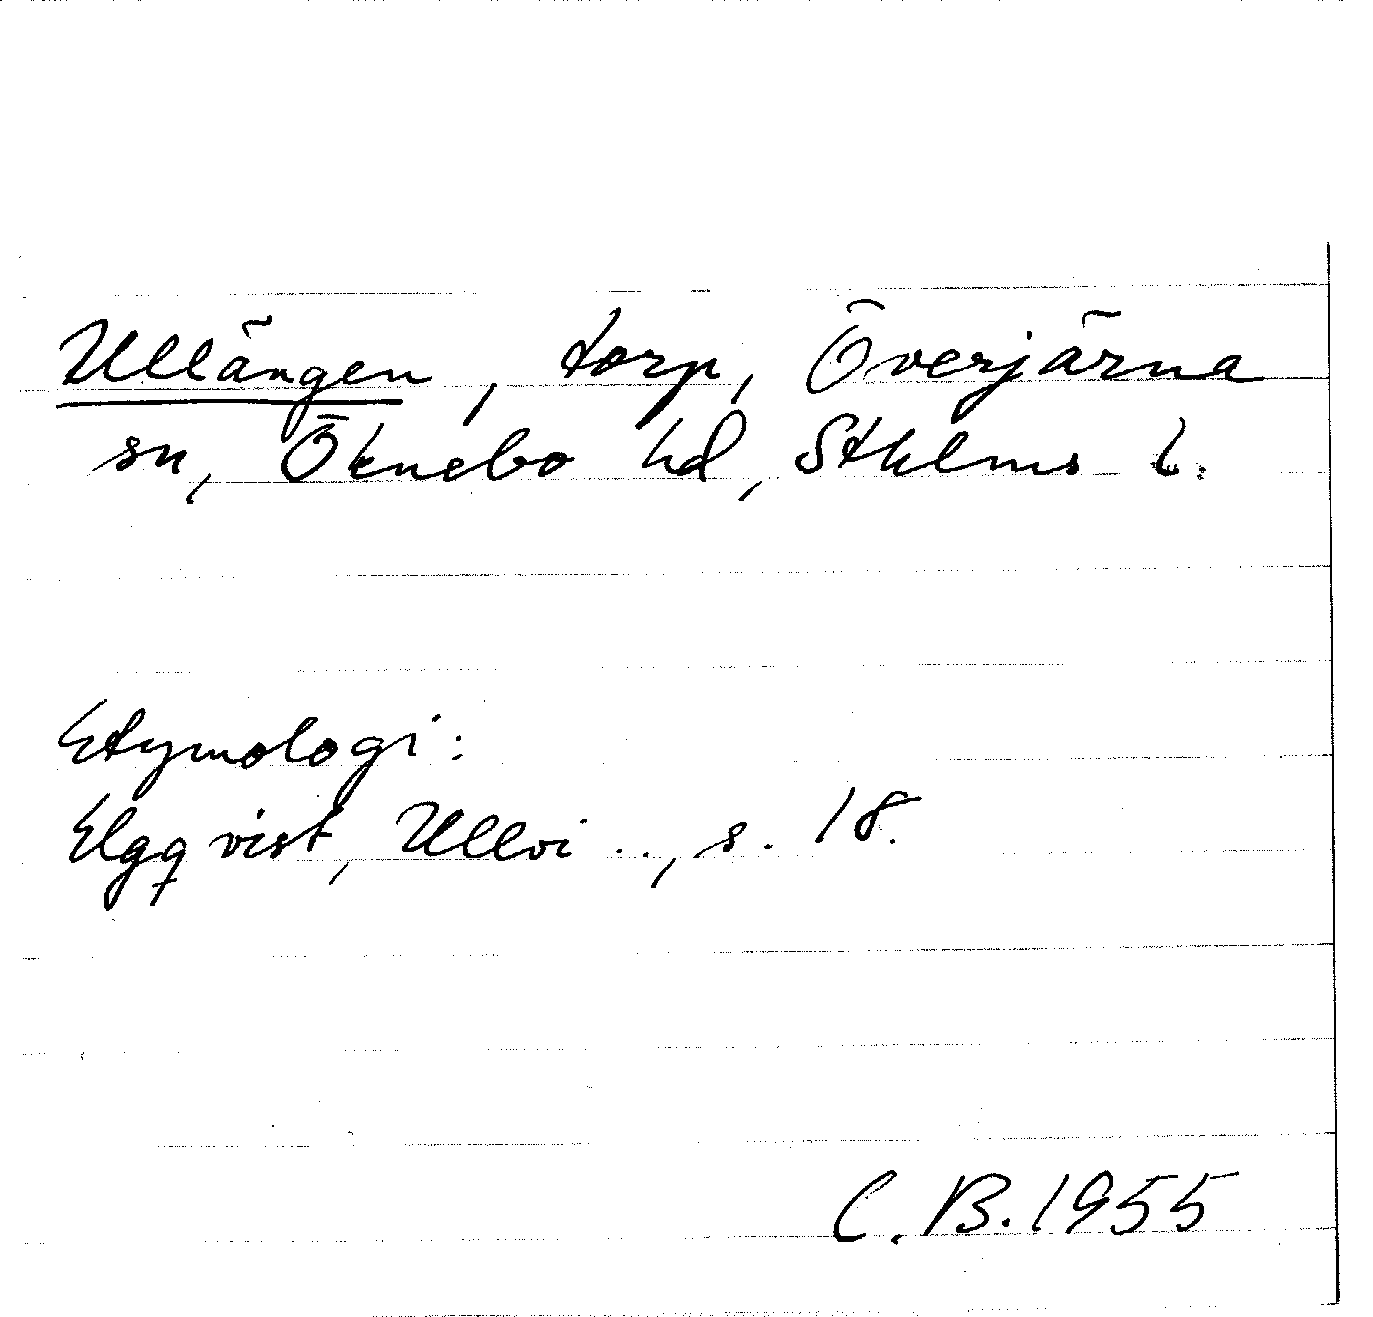 Ullängen, torp, Överjärna
sn, Öknebo hd, Sthlms l.
Etymologi:
Elgqvist, Ullvi .., s. 18.
C.B. 1955